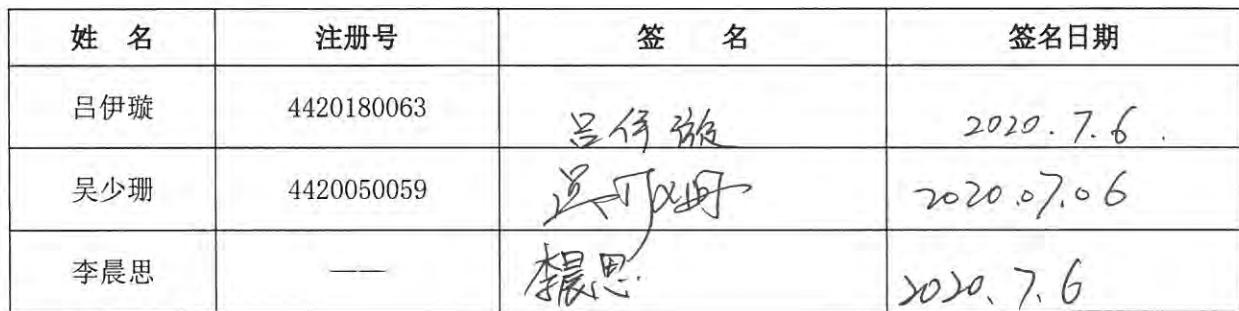 姓 名 注册号 签 名 签名日期
吕伊璇 4420180063 吕伊璇 2020.7.6.
吴少珊 4420050059 吴少珊 2020.07.06
李晨思 —— 李晨思. 2020.7.6